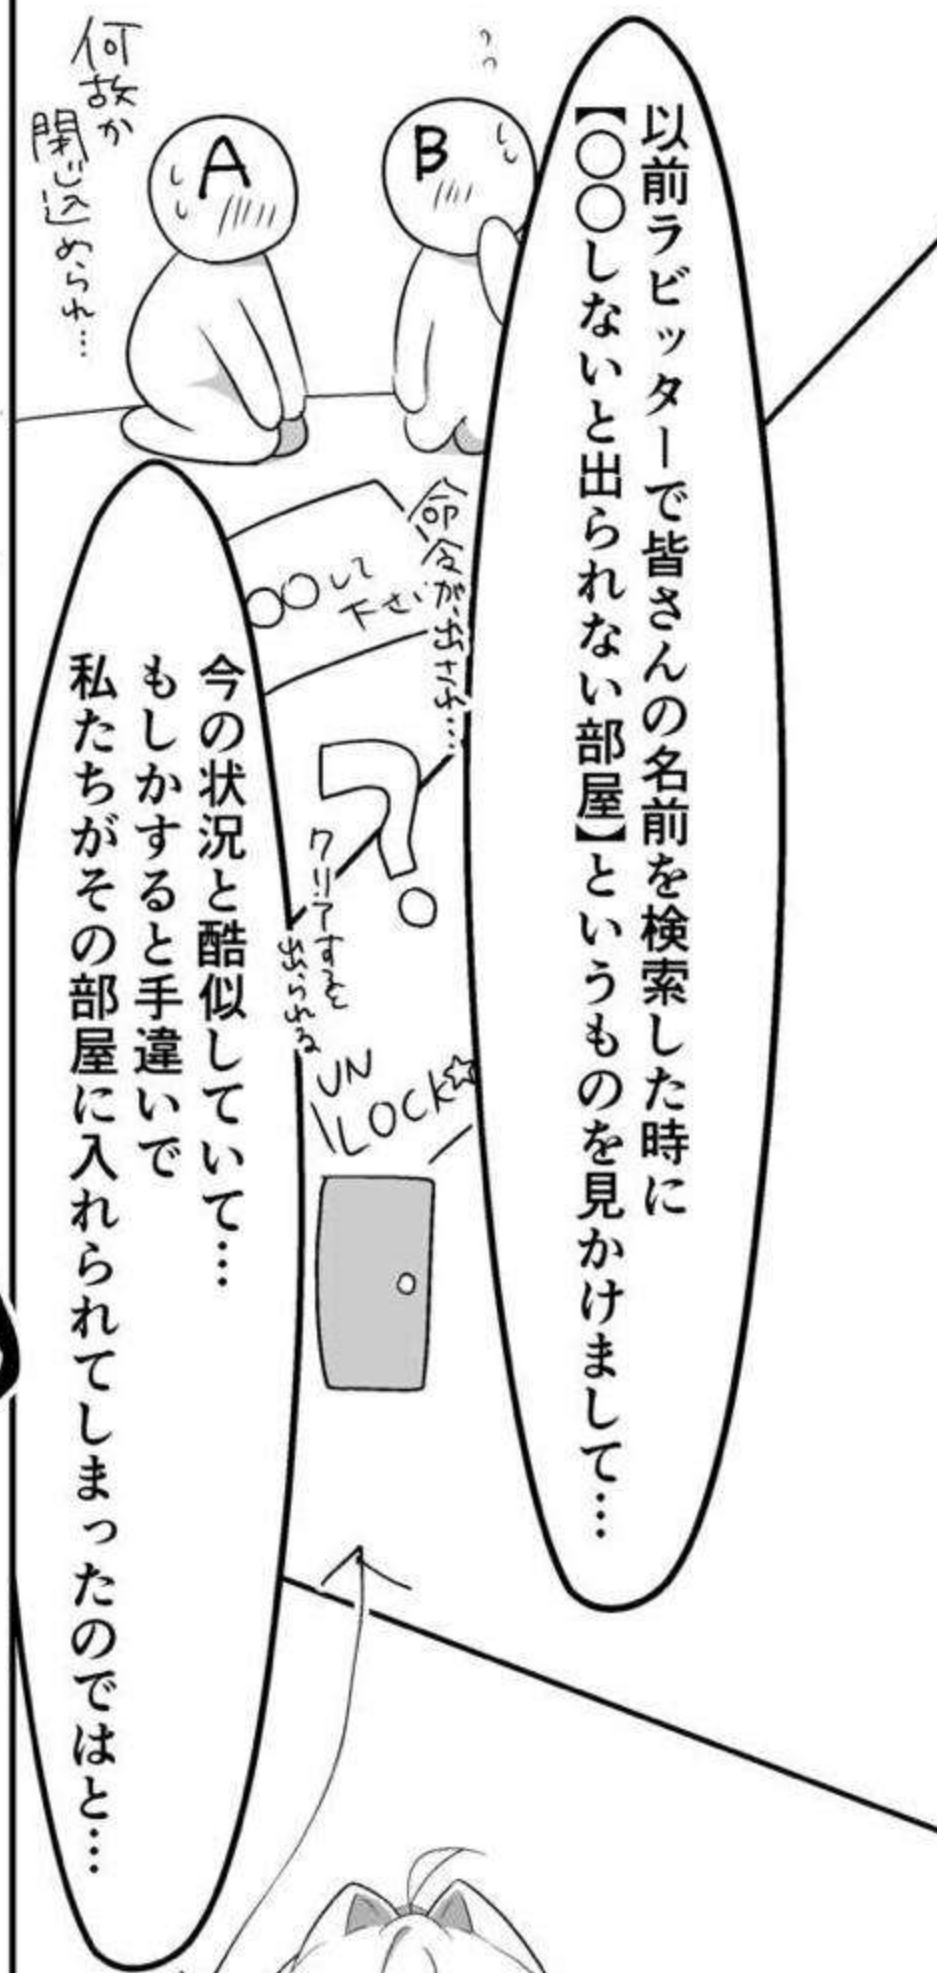 以前ラビッターで皆さんの名前を検索した時に
【○○しないと出られない部屋】というものを見かけまして…
B
A
何故か
閉じ込められ…
命令が出され…
○○して
下さい
?
クリアすると
出られる
UN
LOCK☆
今の状況と酷似していて…
もしかすると手違いで
私たちがその部屋に入れられてしまったのではと…